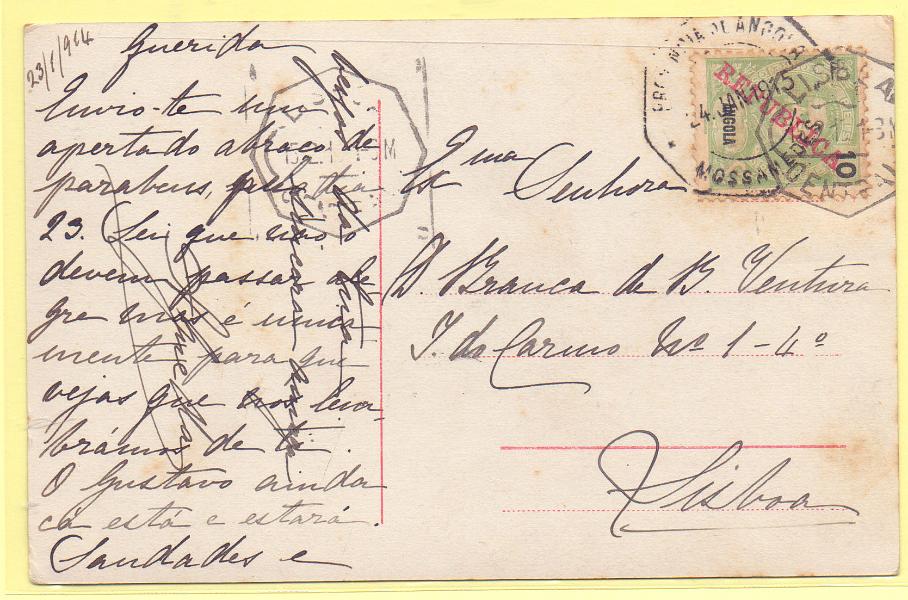 23/1/914
Querida
Envio-te um
apertado abraço de
parabens, pelo dia
23. Sei que não o
devem passar ale
gre mas é unica
mente para que
vejas que nos lem
brámos de ti.
O Gustavo ainda
cá está e estará.
Saudades e
beijos da tua
Exma
Senhora
D. Branca de B. Ventura
T. do Carmo Nº 1-4º
Lisboa
REPUBLICA
ANGOLA
10
MOSSAM